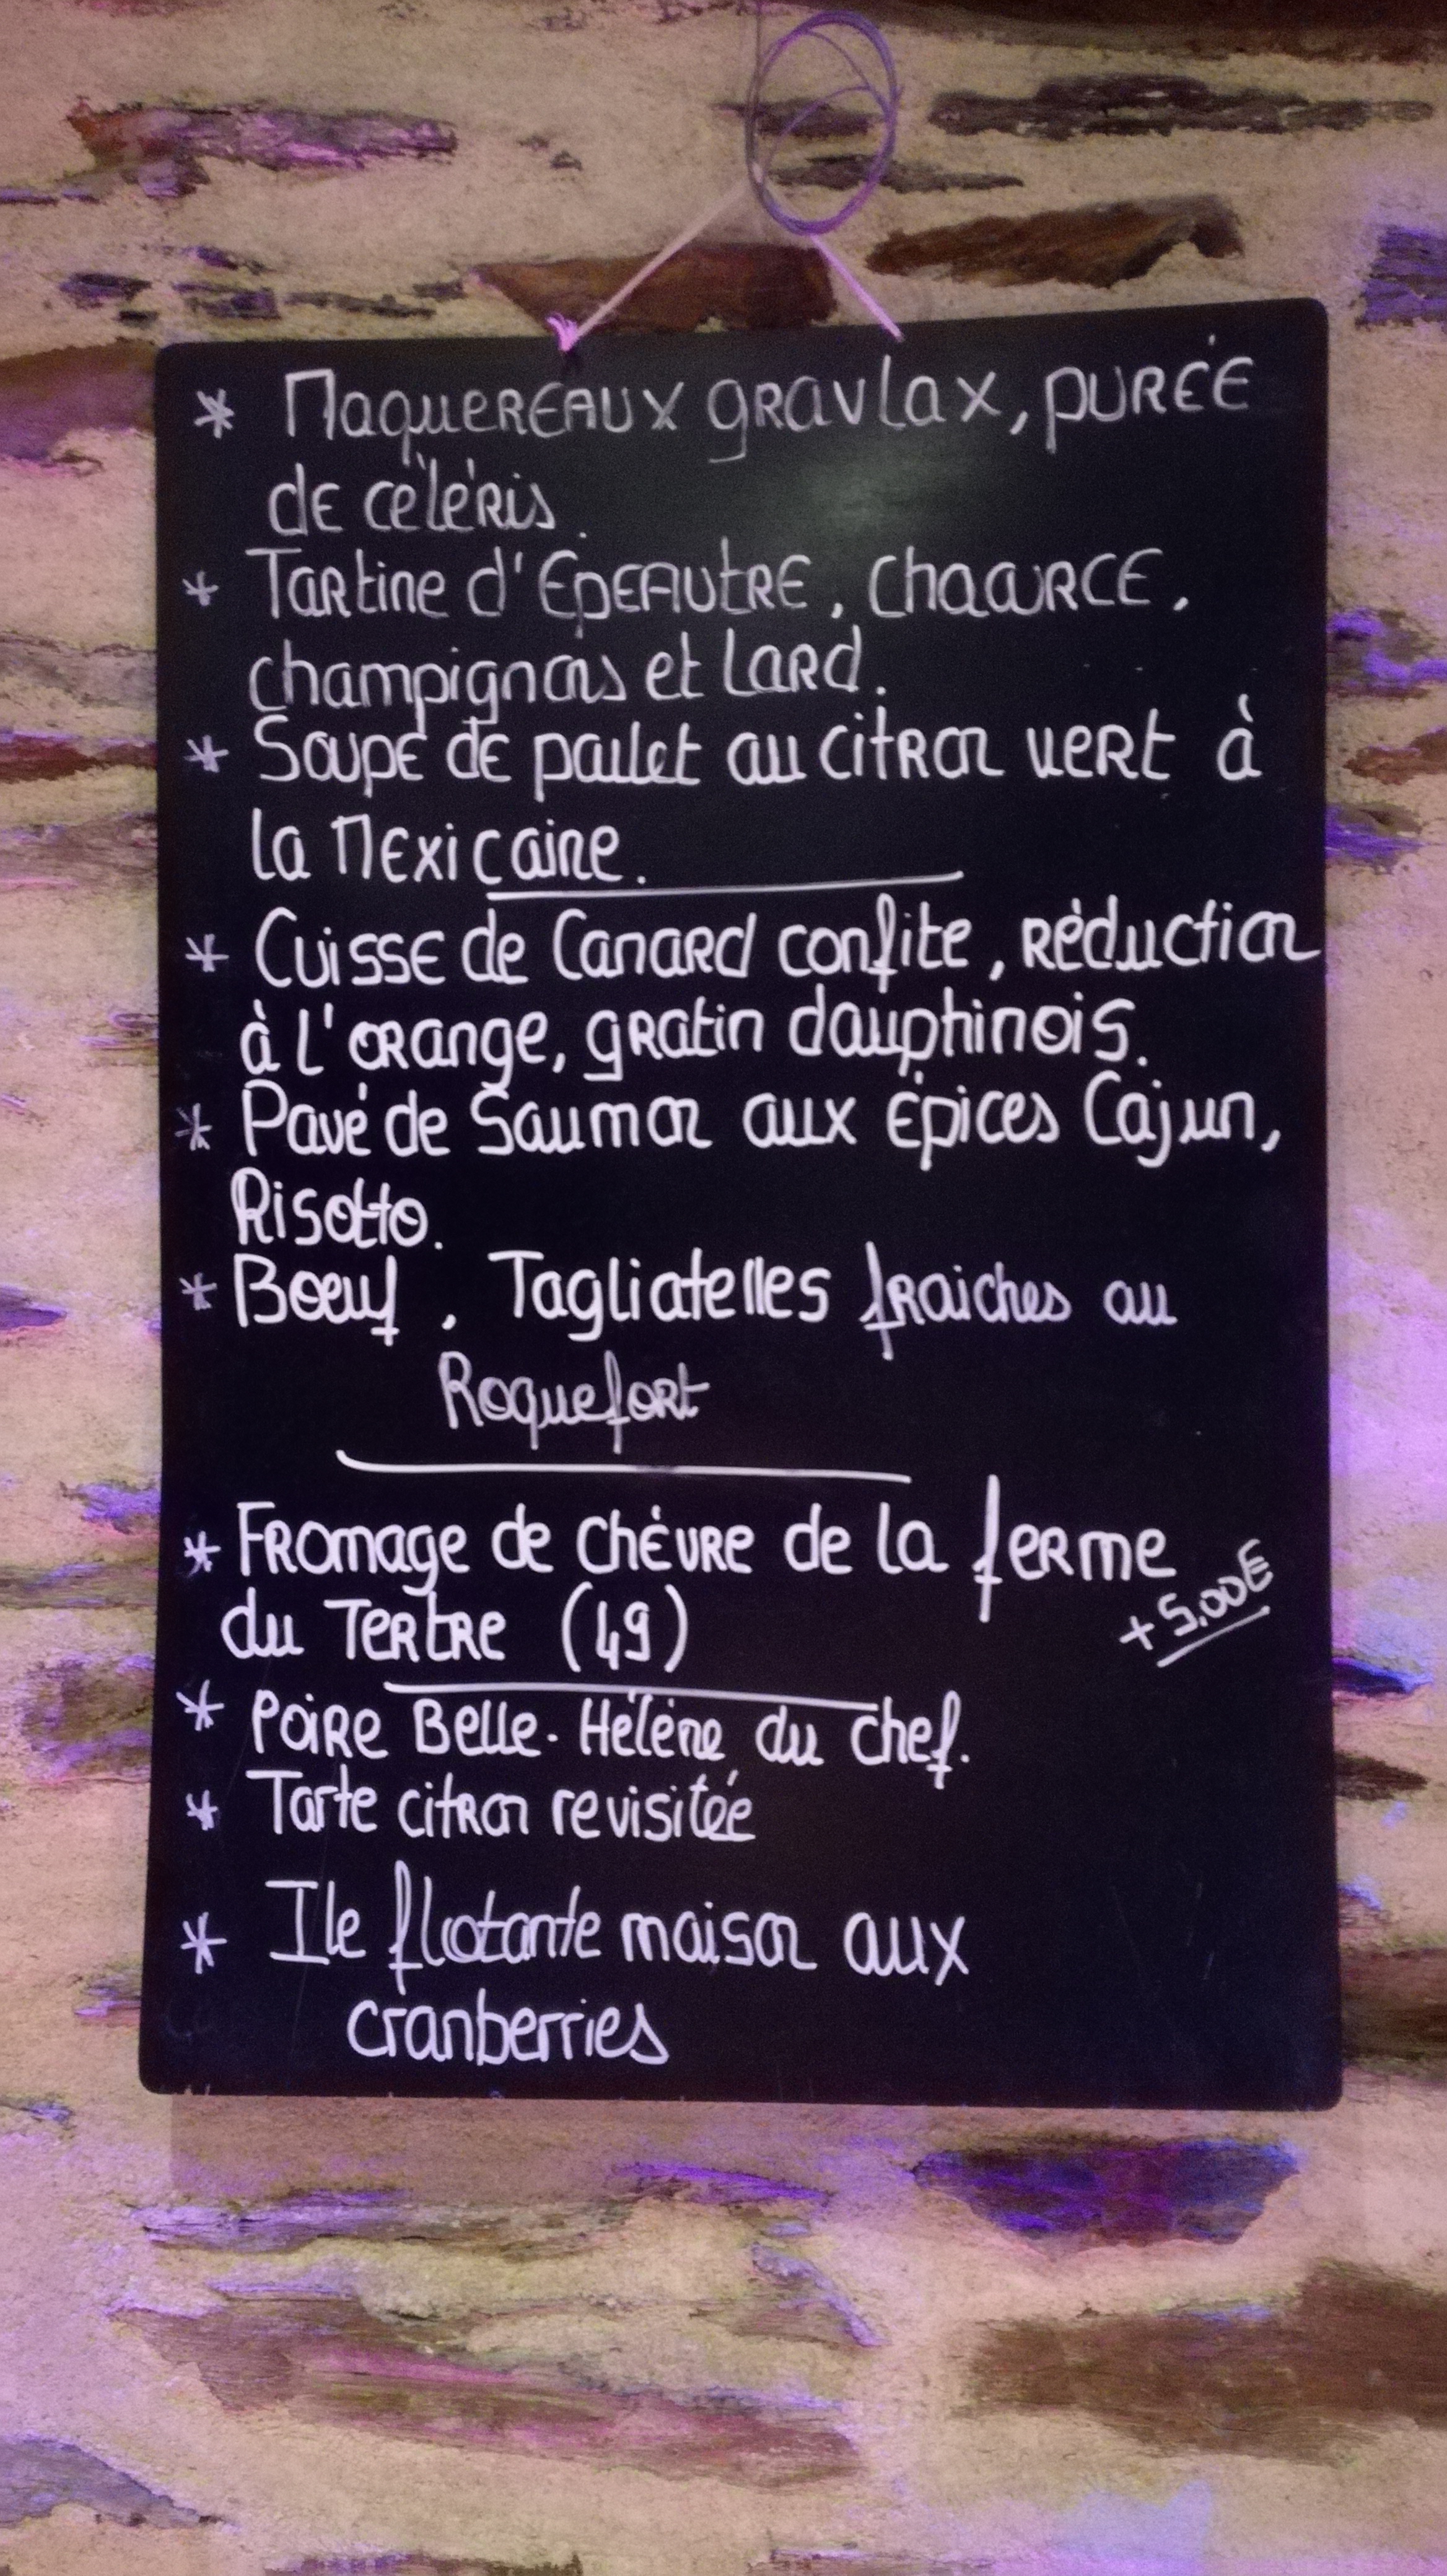 * Maquereaux gravlax, purée
de céléris.
* Tartine d'Epeautre, Chaource,
champignons et Lard.
* Soupe de poulet au citron vert à
la Mexicaine.
* Cuisse de Canard confite, réduction
à l'orange, gratin dauphinois.
* Pavé de Saumon aux épices Cajun,
Risotto.
* Boeuf, Tagliatelles fraiches au
Roquefort
* Fromage de Chèvre de la ferme
du Tertre (49)
+ 5.00E
* Poire Belle-Hélène du chef.
* Tarte citron revisitée
* Ile flotante maison aux
cranberries